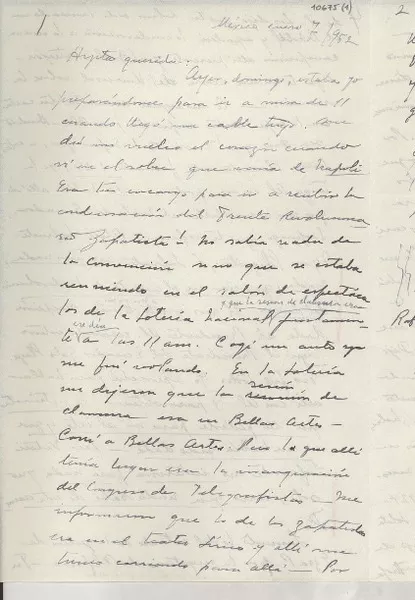 10675 (1)
1
2
México enero 7 / 1952
Hijita querida:
Ayer, domingo, estaba yo
preparándome para ir a misa de 11
cuando llegó un cable tuyo. Me
dió un vuelco el corazón cuando
vi en el sobre que venía de Napoli
Era tu encargo para ir a recibir la
condecoración del Frente Revoluciona
rio Zapatista! No sabía nada de
la convención sino que se estaba
reuniendo en el salón de espectácu
los de la Lotería Nacional y que la sesión de clausura era justamen
te ese día a las 11 am. Cogí un auto y
me fuí volando. En la Lotería
me dijeron que la sesión de
clausura era en Bellas Artes -
Corrí a Bellas Artes. Pero lo que allí
tenía lugar era la inauguración
del Congreso de Telegrafistas - Me
informaron que lo de los zapatistas
era en el teatro Lírico y allí me
tienes corriendo para allá - Por